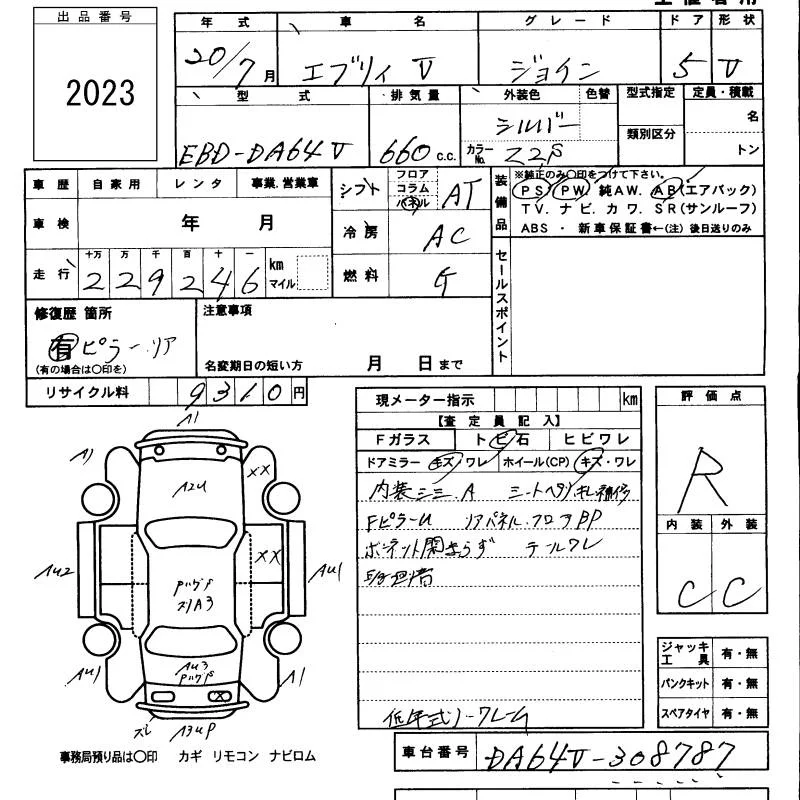 出品番号
2023
年式 車名 グレード ドア 形状
20/7月 エブリィ V ジョイン 5 V
型式 排気量 外装色 色替 型式指定 定員・積載
EBD-DA64V 660 c.c. シルバー 類別区分 名
カラーNo. Z2S トン
車歴 自家用 レンタ 事業.営業車
シフト フロア コラム パネル AT
装備品
※純正のみ○印をつけて下さい。
PS PW 純AW. AB(エアバック)
TV. ナビ. カワ. SR(サンルーフ)
ABS ・ 新車保証書←(注) 後日送りのみ
車検 年 月
冷房 AC
走行 十万 万 千 百 十 一 km マイル
229246
燃料 G
セールスポイント
修復歴 箇所
有 ピラー.リア
(有の場合は○印を)
注意事項
名変期日の短い方 月 日まで
リサイクル料 9310円
現メーター指示 km
【査定員記入】
Fガラス トビ石 ヒビワレ
ドアミラー キズ・ワレ ホイール(CP) キズ・ワレ
内装
シートヘタリ
FピラーU リアパネル.フロアPP
ボンネット開まらず テールワレ
評価点
R
内装 外装
C C
A1
A1
A2U
XX
XX
AU2
AU1
A3
AU3
AU1
A1
X
ジャッキ工具 有・無
パンクキット 有・無
スペアタイヤ 有・無
低年式ノークレーム
事務局預り品は○印 カギ リモコン ナビロム
車台番号 DA64V-308787